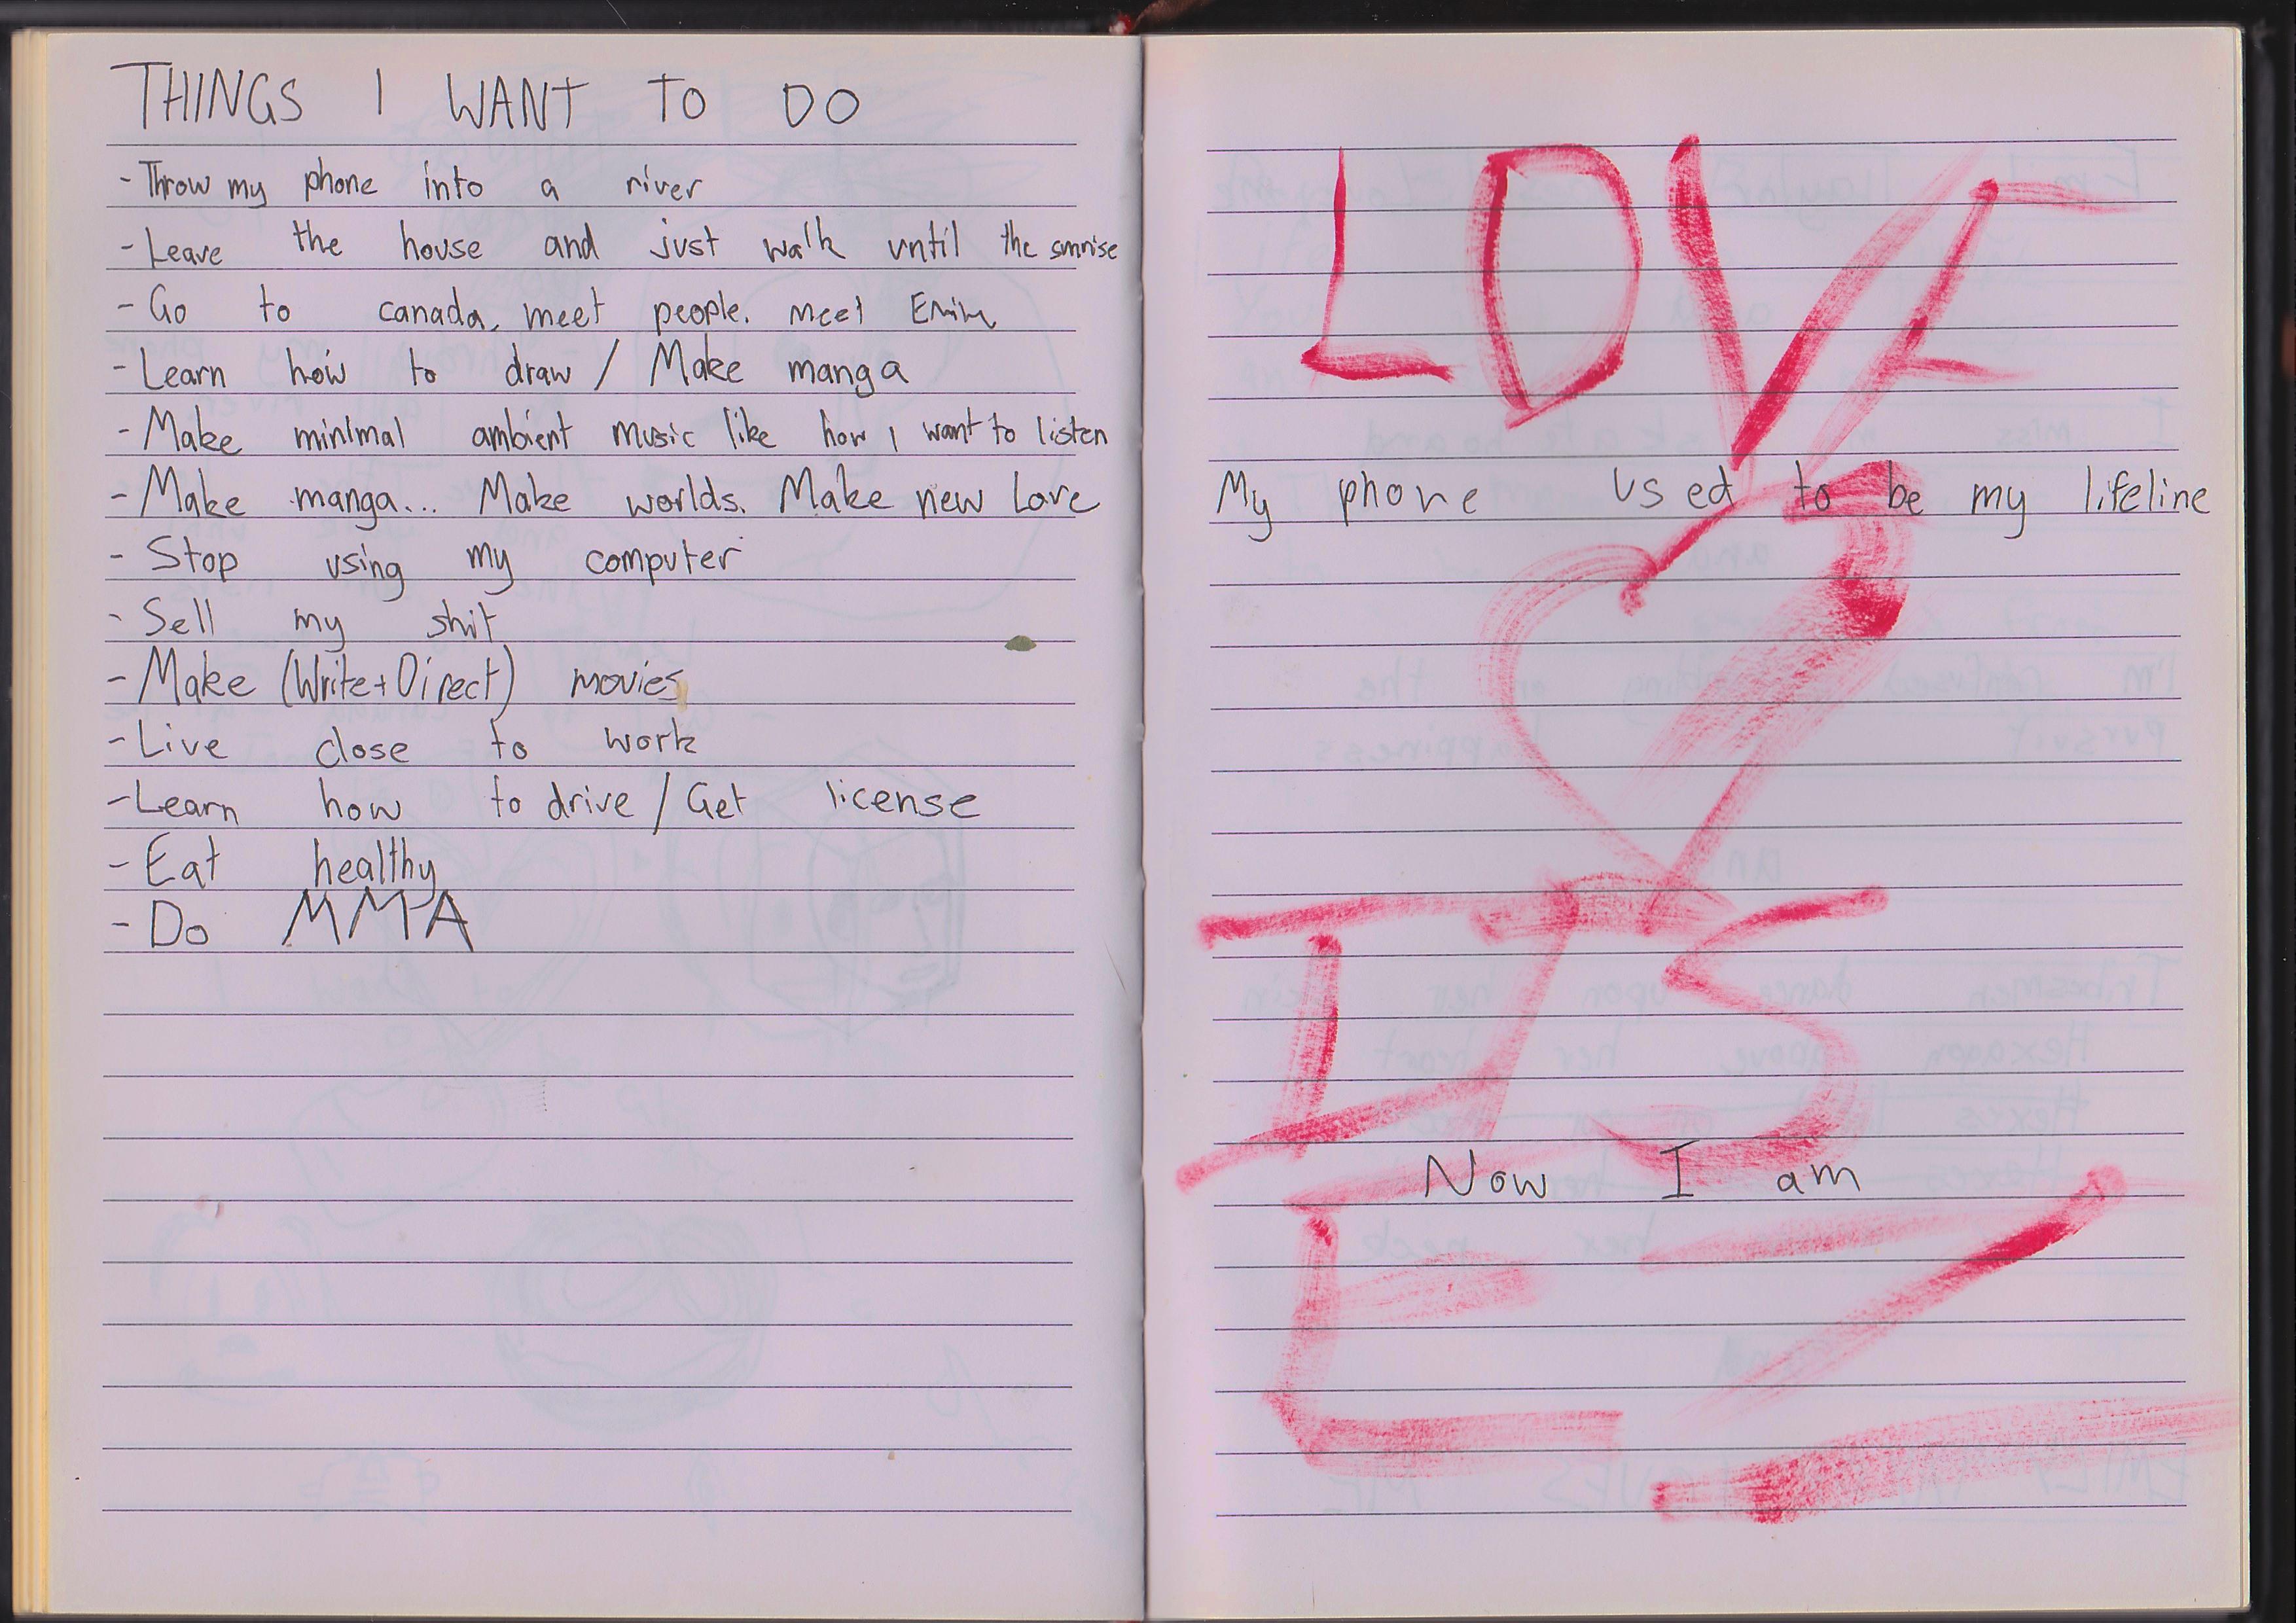 THINGS I WANT TO DO
- Throw my phone into a river
- Leave the house and just walk until the sunrise
- Go to canada, meet people. meet
- Learn how to draw / Make manga
- Make minimal ambient music like how I want to listen
- Make manga... Make worlds. Make new Love
- Stop using my computer
- Sell my shit
- Make (Write+Direct) movies
- Live close to work
- Learn how to drive / Get license
- Eat healthy
- Do MMA
LOVE
My phone used to be my lifeline
IS
Now I am
EZ